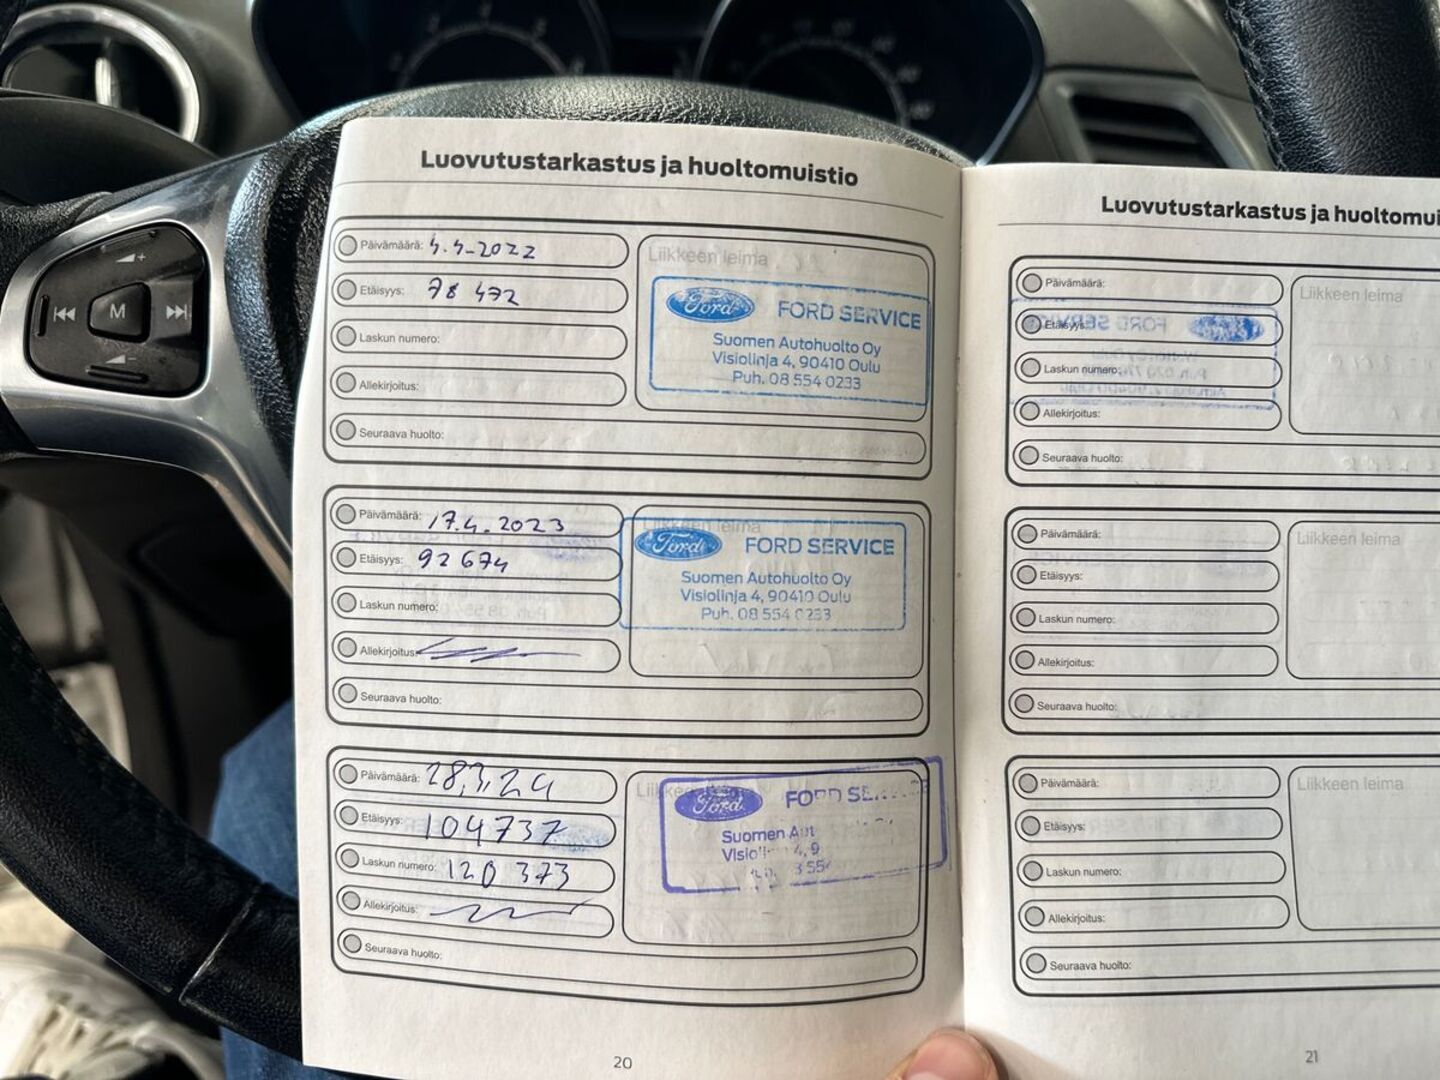 Luovutustarkastus ja huoltomuistio
Päivämäärä: 4.4-2022
Etäisyys: 78 472
Laskun numero:
Allekirjoitus:
Seuraava huolto:
Liikkeen leima
Ford FORD SERVICE
Suomen Autohuolto Oy
Visiolinja 4, 90410 Oulu
Puh. 08 554 0233
Päivämäärä: 17.4.2023
Etäisyys: 92 674
Laskun numero:
Allekirjoitus:
Seuraava huolto:
Liikkeen leima
Ford FORD SERVICE
Suomen Autohuolto Oy
Visiolinja 4, 90410 Oulu
Puh. 08 554 0233
Päivämäärä: 28.3.24
Etäisyys: 104737
Laskun numero: 120 373
Allekirjoitus:
Seuraava huolto:
Ford
Suomen
4, 9
20
Luovutustarkastus ja huoltomui
Päivämäärä:
Etäisyys:
Laskun numero:
Allekirjoitus:
Seuraava huolto:
Liikkeen leima
Päivämäärä:
Etäisyys:
Laskun numero:
Allekirjoitus:
Seuraava huolto:
Liikkeen leima
Päivämäärä:
Etäisyys:
Laskun numero:
Allekirjoitus:
Seuraava huolto:
Liikkeen leima
21
M